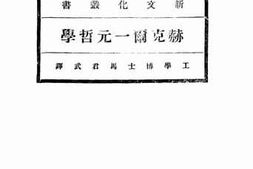 新文化叢書
赫克爾一元哲學
工學博士馬君武譯